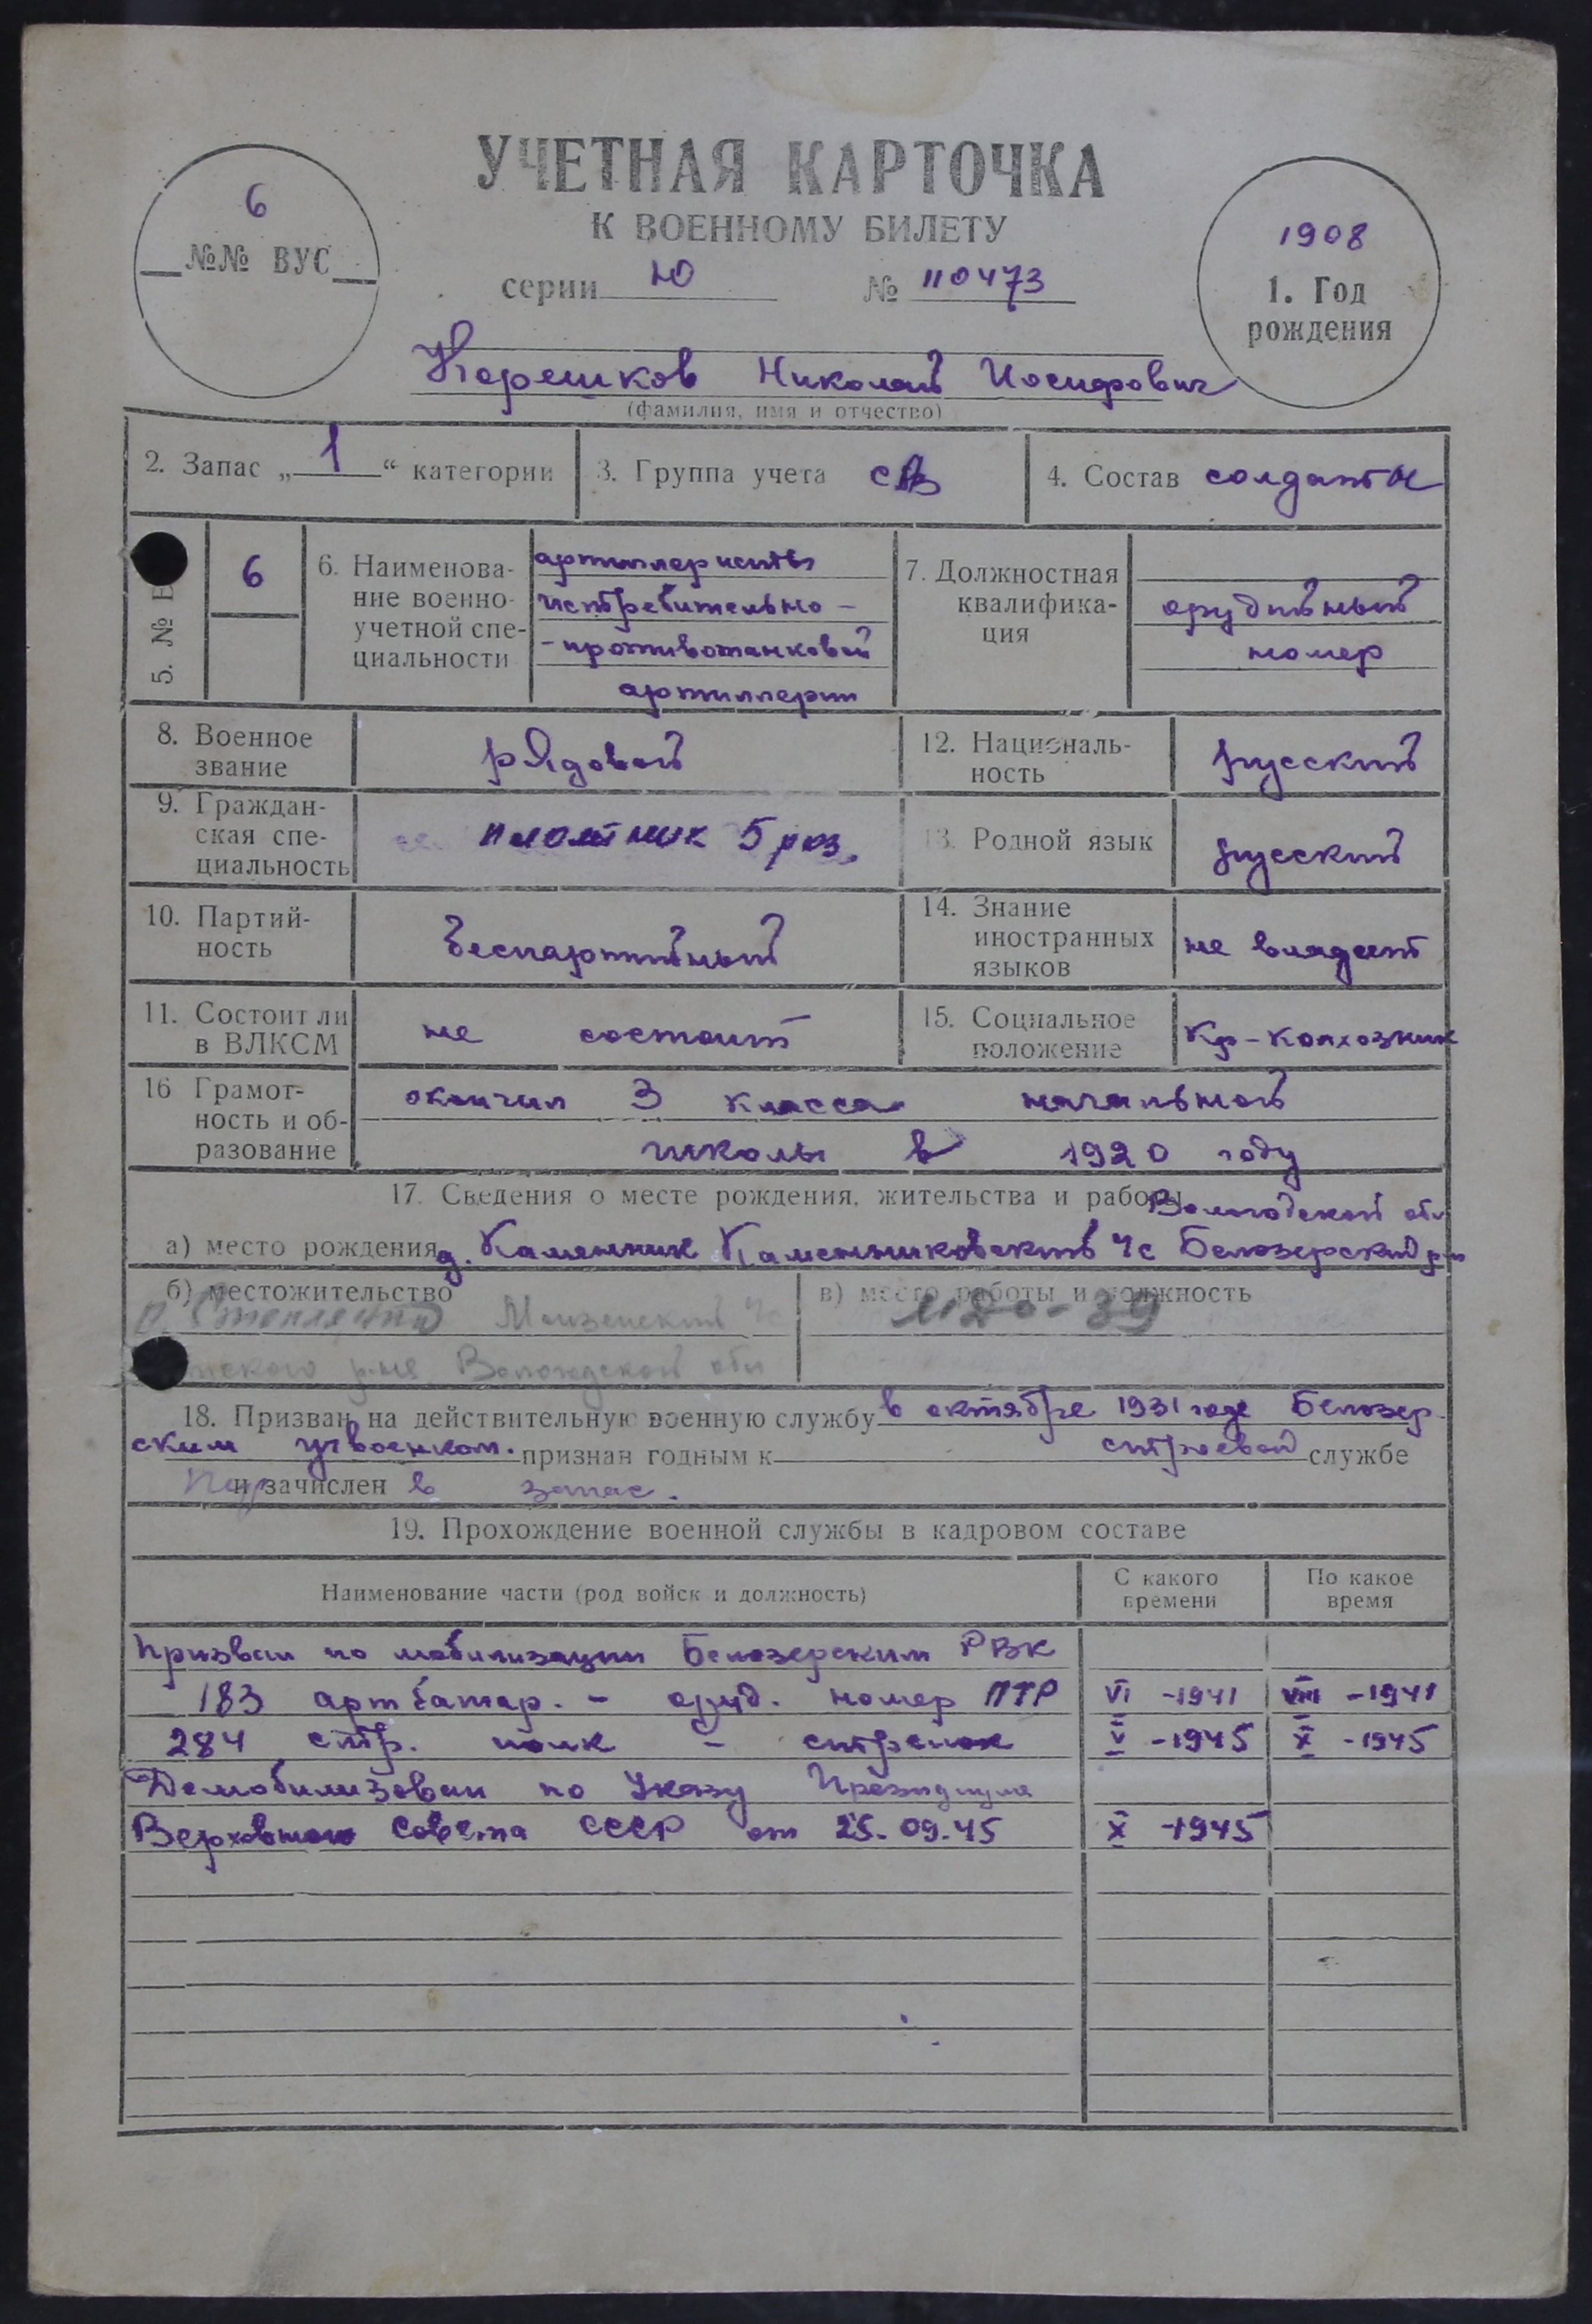 УЧЕТНАЯ КАРТОЧКА
К ВОЕННОМУ БИЛЕТУ
6
№№ ВУС
серии Ю № 110473
1908
1. Год
рождения
Корешков Николай Иосифович
(фамилия, имя и отчество)
2. Запас „ 1 “ категории
3. Группа учета СА
4. Состав солдаты
5. № В
6
6. Наименова-
ние военно-
учетной спе-
циальности
артиллеристы
истребительно -
- противотанковой
артиллерии
7. Должностная
квалифика-
ция
орудийный
номер
8. Военное
звание
рядовой
12. Националь-
ность
русский
9. Граждан-
ская спе-
циальность
плотник 5 раз.
13. Родной язык
русский
10. Партий-
ность
беспартийный
14. Знание
иностранных
языков
не владеет
11. Состоит ли
в ВЛКСМ
не состоит
15. Социальное
положение
Кр-колхозник
16 Грамот-
ность и об-
разование
окончил 3 класса начальной
школы в 1920 году
17. Сведения о месте рождения, жительства и работы
Вологодской обл
а) место рождения д. Каменник Каменниковский Чс Белозерский р-н
б) местожительство
Вологодской обл
в) место работы и должность
МДО-39
18. Призван на действительную военную службу в октябре 1931 года Белозер-
ским угвоенком. признан годным к строевой службе
и зачислен в запас.
19. Прохождение военной службы в кадровом составе
Наименование части (род войск и должность)
С какого
времени
По какое
время
Призван по мобилизации Белозерским РВК
183 арт батар. - оруд. номер ПТР VI -1941 VIII -1941
284 стр. полк - стрелок V -1945 X -1945
Демобилизован по Указу Президиума
Верховного Совета СССР от 25.09.45 X -1945